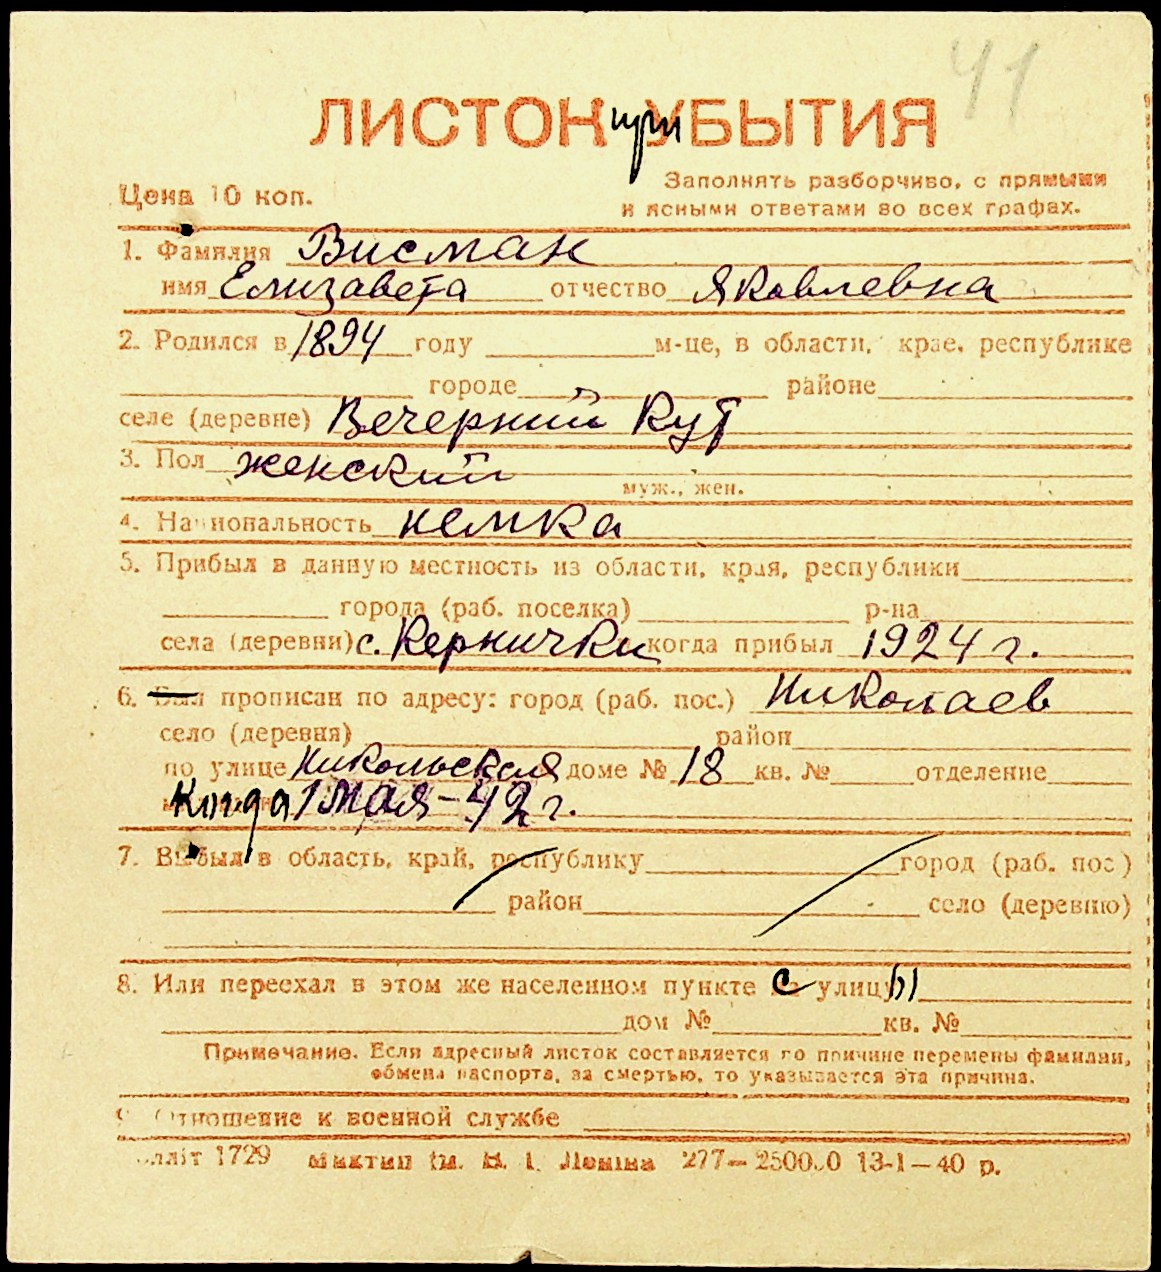 41
ЛИСТОК при УБЫТИЯ
Цена 10 коп.
Заполнять разборчиво, с прямыми
и ясными ответами во всех графах.
1. Фамилия Висман
имя Елизавета отчество Яковлевна
2. Родился в 1894 году м-це, в области, крае, республике
городе районе
селе (деревне) Вечерний Кут
3. Пол женский
муж., жен.
4. Национальность немка
5. Прибыл в данную местность из области, края, республики
города (раб. поселка) р-на
села (деревни) с. Кернички когда прибыл 1924 г.
6. Был прописан по адресу: город (раб. пос.) Николаев
село (деревня) район
по улице Никольская доме № 18 кв. № отделение
Когда 1 мая - 42 г.
7. Выбыл в область, край, республику город (раб. пос)
район село (деревню)
8. Или переехал в этом же населенном пункте с улицы
дом № кв. №
Примечание. Если адресный листок составляется по причине перемены фамилии,
обмена паспорта, за смертью, то указывается эта причина.
9. Отношение к военной службе
лліт 1729 ім. В. І. Леніна 277—2500.0 13-1—40 р.